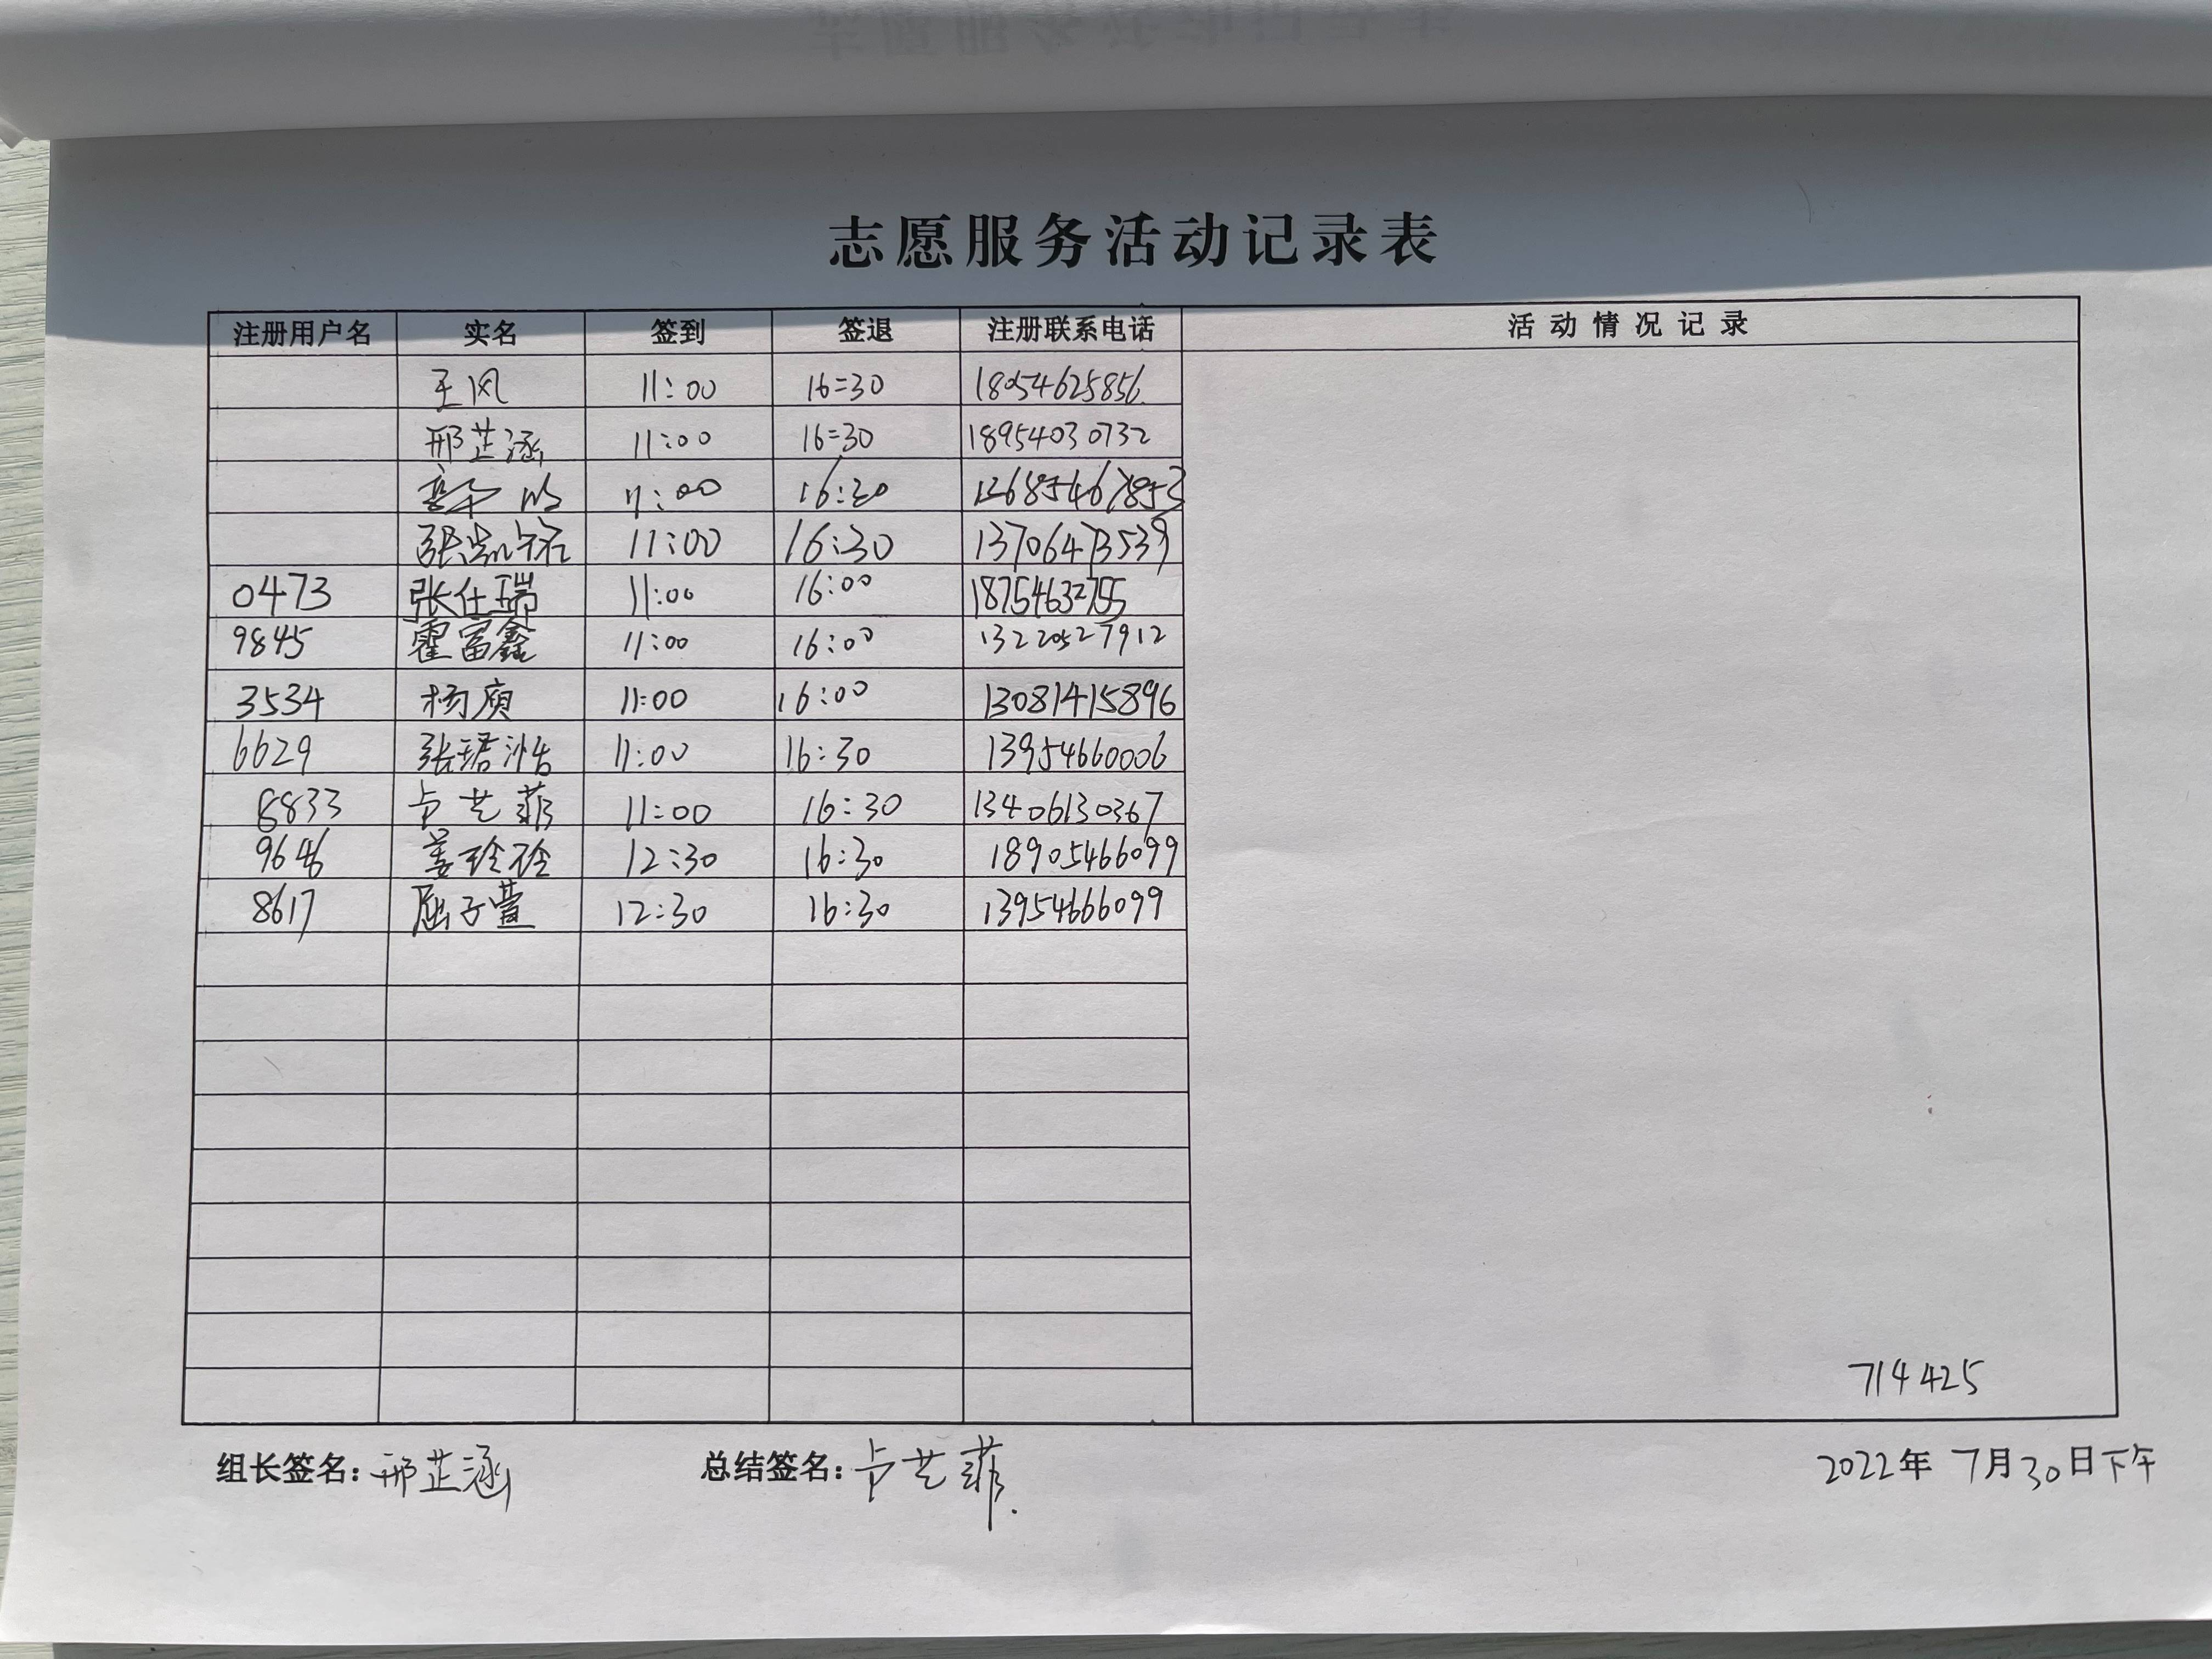 志愿服务活动记录表
注册用户名 实名 签到 签退 注册联系电话 活动情况记录
王风 11:00 16=30 18054625856
邢芷涵 11:00 16=30 18954030732
11:00 16:30
张 11:00 16:30 13706473539
0473 张仕瑞 11:00 16:00 18754632755
9845 霍富鑫 11:00 16:00 13220527912
3534 杨 11:00 16:00 13081415896
6629 张珺 11:00 16:30 13954660006
8833 卢艺菲 11:00 16:30 13406130367
9646 姜玲玲 12:30 16:30 18905466099
8617 屈子萱 12:30 16:30 13954666099
714425
组长签名: 邢芷涵 总结签名: 卢艺菲. 2022年 7月30日下午